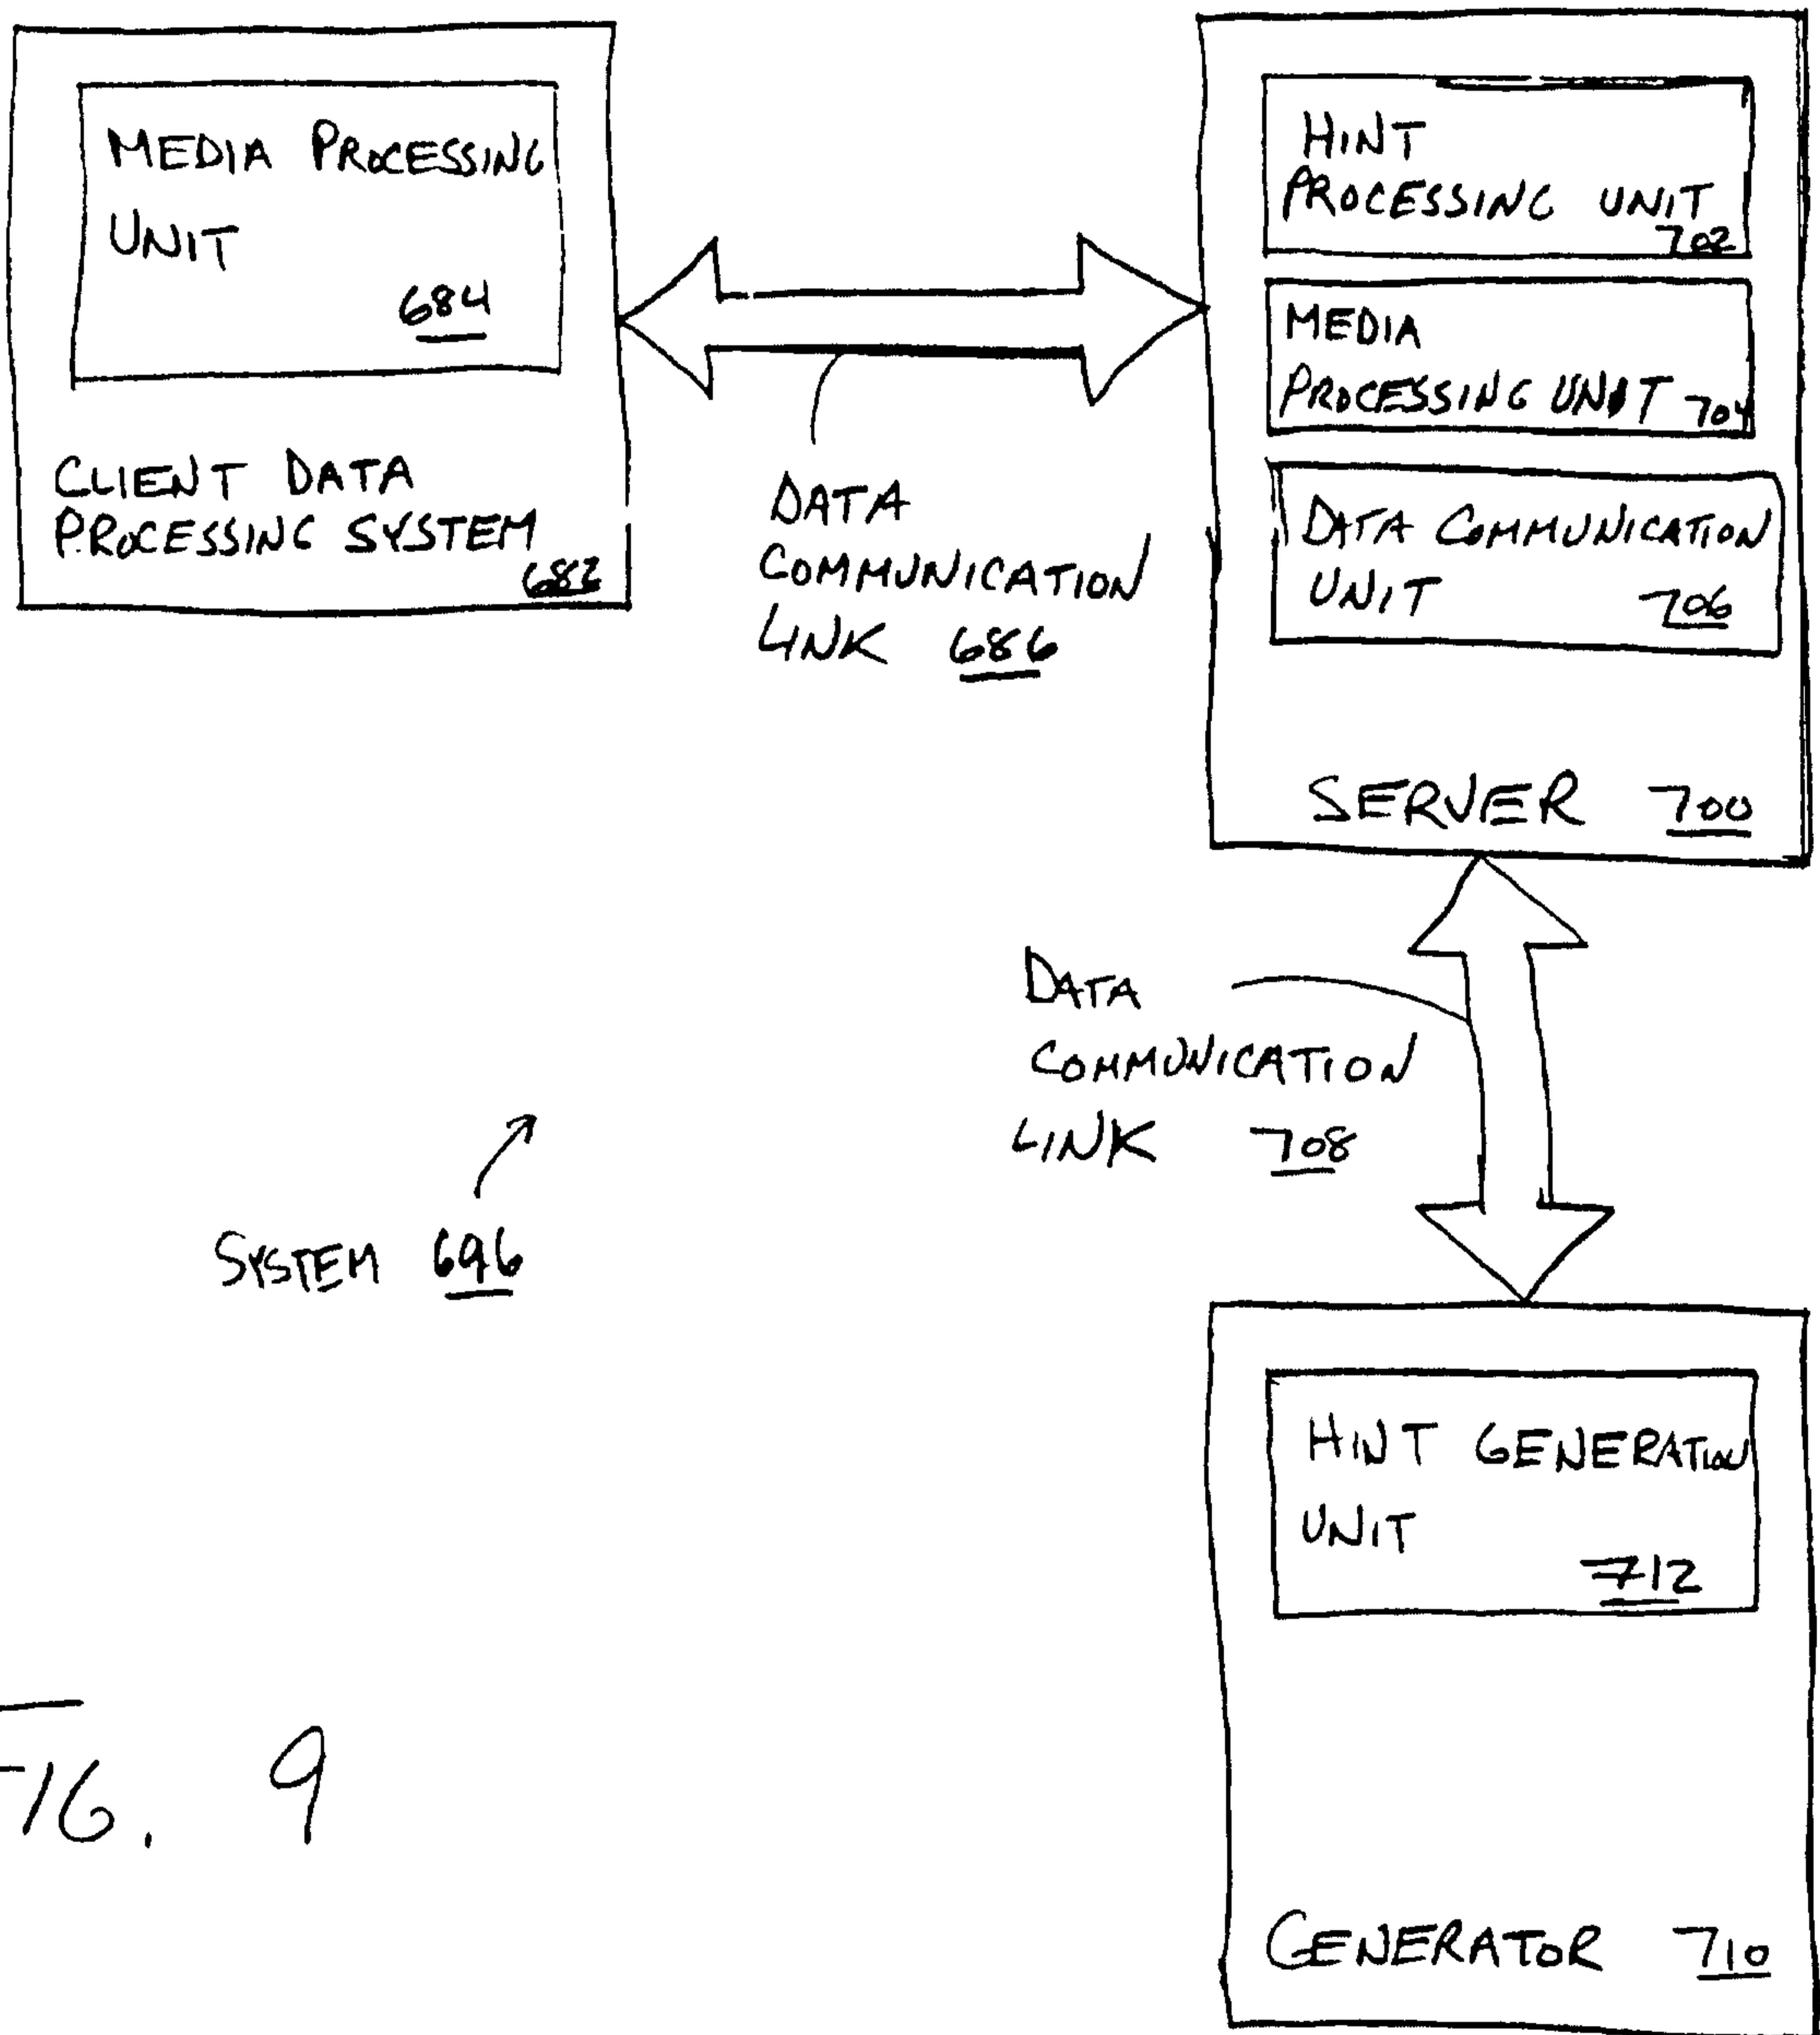 MEDIA PROCESSING
UNIT
684
CLIENT DATA
PROCESSING SYSTEM
682
DATA
COMMUNICATION
LINK 686
HINT
PROCESSING UNIT
702
MEDIA
PROCESSING UNIT 704
DATA COMMUNICATION
UNIT 706
SERVER 700
DATA
COMMUNICATION
LINK 708
SYSTEM 696
HINT GENERATION
UNIT
712
GENERATOR 710
FIG. 9